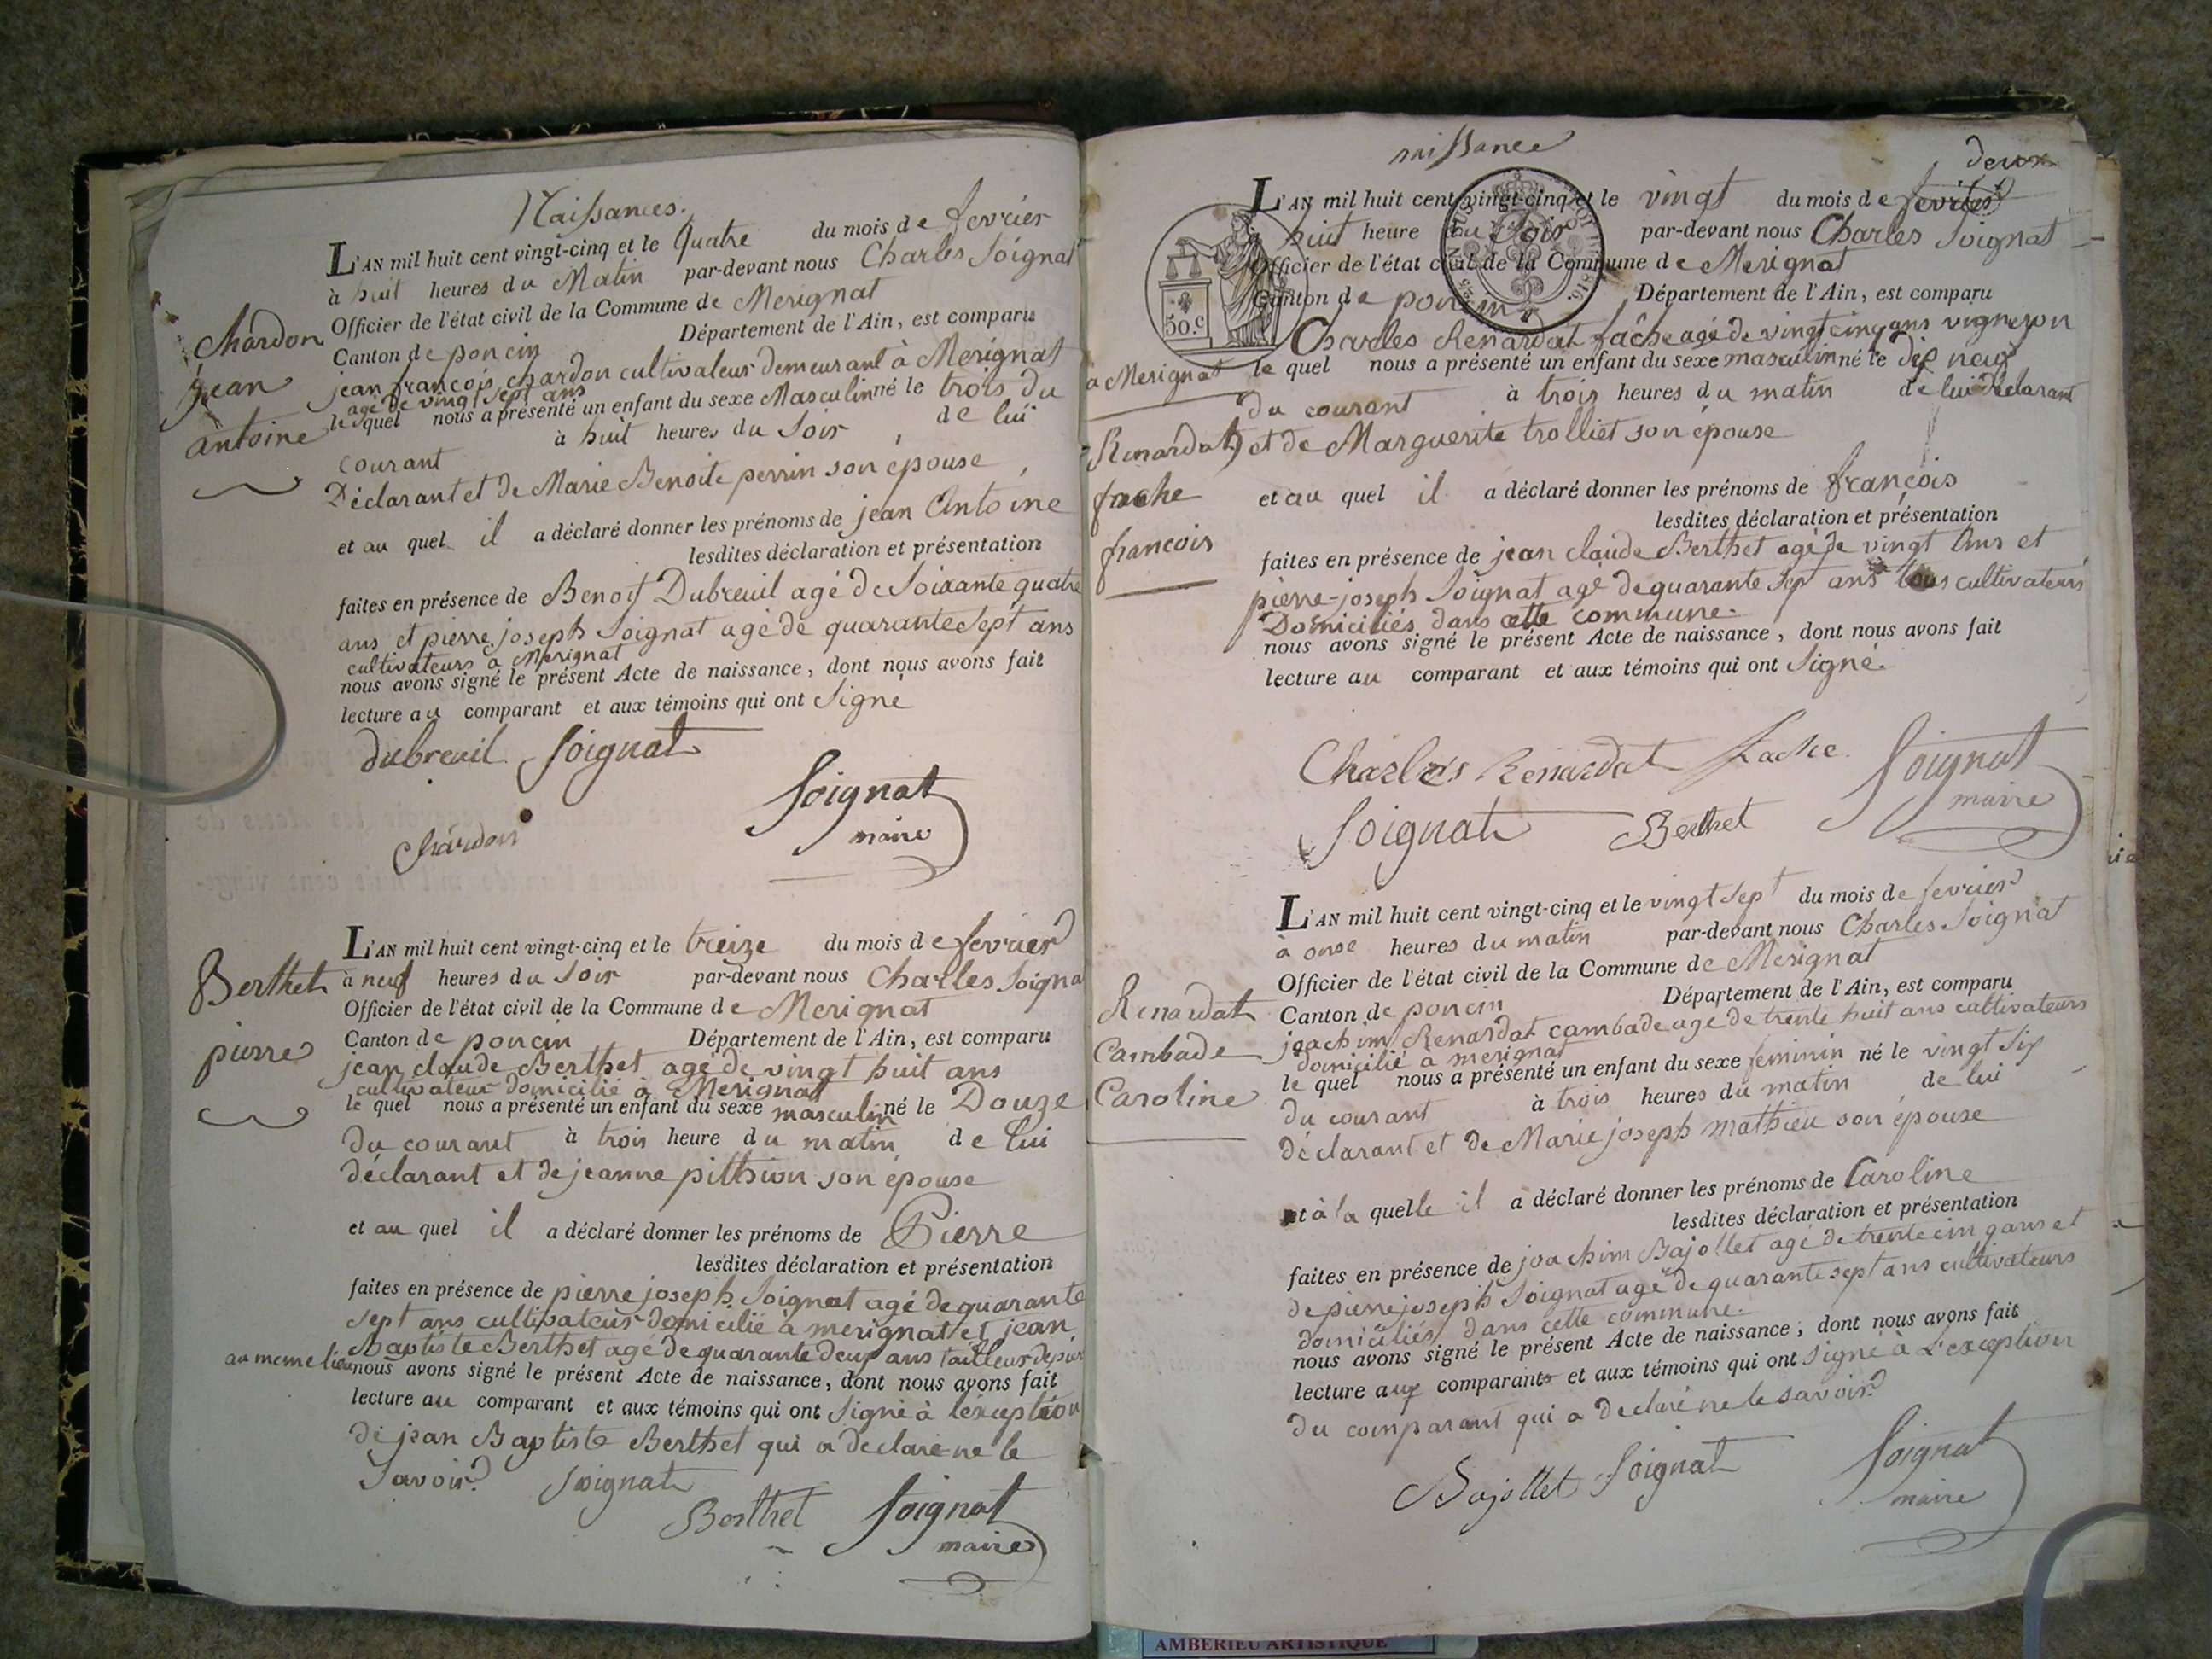 Naissances.
L'AN mil huit cent vingt-cinq et le Quatre du mois de fevrier
à huit heures du Matin par-devant nous Charles Soignat
Officier de l'état civil de la Commune de Merignat
Canton de poncin Département de l'Ain, est comparu
jean françois chardon cultivateur demeurant à Merignat
agé de vingt sept ans
lequel nous a présenté un enfant du sexe Masculin né le trois du
courant à huit heures du Soir, de lui
Déclarant et de Marie Benoite perrin son épouse,
et au quel il a déclaré donner les prénoms de jean Antoine
lesdites déclaration et présentation
faites en présence de Benoit Dubreuil agé de Soixante quatre
ans et pierre joseph Soignat agé de quarante Sept ans
cultivateurs à Merignat
nous avons signé le présent Acte de naissance, dont nous avons fait
lecture au comparant et aux témoins qui ont Signé
dubreuil Soignat
Soignat
maire
chardon
chardon
jean
antoine
L'AN mil huit cent vingt-cinq et le treize du mois de fevrier
à neuf heures du Soir par-devant nous Charles Soigna
Officier de l'état civil de la Commune de Merignat
Canton de poncin Département de l'Ain, est comparu
jean claude Berthet agé de vingt huit ans
cultivateur domicilié à Merignat
le quel nous a présenté un enfant du sexe masculin né le Douze
du courant à trois heure du matin de lui
déclarant et de jeanne pithion son épouse
et au quel il a déclaré donner les prénoms de Pierre
lesdites déclaration et présentation
faites en présence de pierre joseph Soignat agé de quarante
sept ans cultivateur domicilié à merignat et jean
Baptiste Berthet agé de quarante deux ans tailleur de pier
au meme lieu nous avons signé le présent Acte de naissance, dont nous avons fait
lecture au comparant et aux témoins qui ont Signé à l'exception
de jean Baptiste Berthet qui a declaré ne le
Savoir Soignat
Berthet Soignat
maire
Berthet
pierre
naissance
deux
L'AN mil huit cent vingt-cinq et le vingt du mois de fevrier
huit heure du Soir par-devant nous Charles Soignat
Officier de l'état civil de la Commune de Merignat
Canton de poncin Département de l'Ain, est comparu
50.c
Charles Renardat fâche agé de vingt cinq ans vigneron
à Merignat le quel nous a présenté un enfant du sexe masculin né le dix neuf
du courant à trois heures du matin de lui Déclarant
et de Marguerite trolliet son épouse
et au quel il a déclaré donner les prénoms de françois
lesdites déclaration et présentation
faites en présence de jean claude Berthet agé de vingt Ans et
pierre-joseph Soignat agé de quarante Sept ans tous cultivateurs
Domiciliés dans cette commune.
nous avons signé le présent Acte de naissance, dont nous avons fait
lecture au comparant et aux témoins qui ont Signé.
Renardat
fache
francois
Charles Renardat fache Soignat
maire
Soignat Berthet
L'AN mil huit cent vingt-cinq et le vingt Sept du mois de fevrier
à onse heures du matin par-devant nous Charles Soignat
Officier de l'état civil de la Commune de Merignat
Canton de poncin Département de l'Ain, est comparu
joachim Renardat cambade agé de trente huit ans cultivateurs
domicilié a merignat
le quel nous a présenté un enfant du sexe feminin né le vingt Six
du courant à trois heures du matin de lui
déclarant et de Marie joseph mathieu son épouse
et à la quelle il a déclaré donner les prénoms de Caroline
lesdites déclaration et présentation
faites en présence de joachim Bajollet agé de trente cinq ans et
de pierre joseph Soignat agé de quarante sept ans cultivateurs
domiciliés dans cette commune.
nous avons signé le présent Acte de naissance, dont nous avons fait
lecture aux comparants et aux témoins qui ont Signé à L'exception
du comparant qui a declaré ne le savoir
Renardat
Cambade
Caroline
Bajollet Soignat Soignat
maire
AMBERIEU ARTISTIQUE